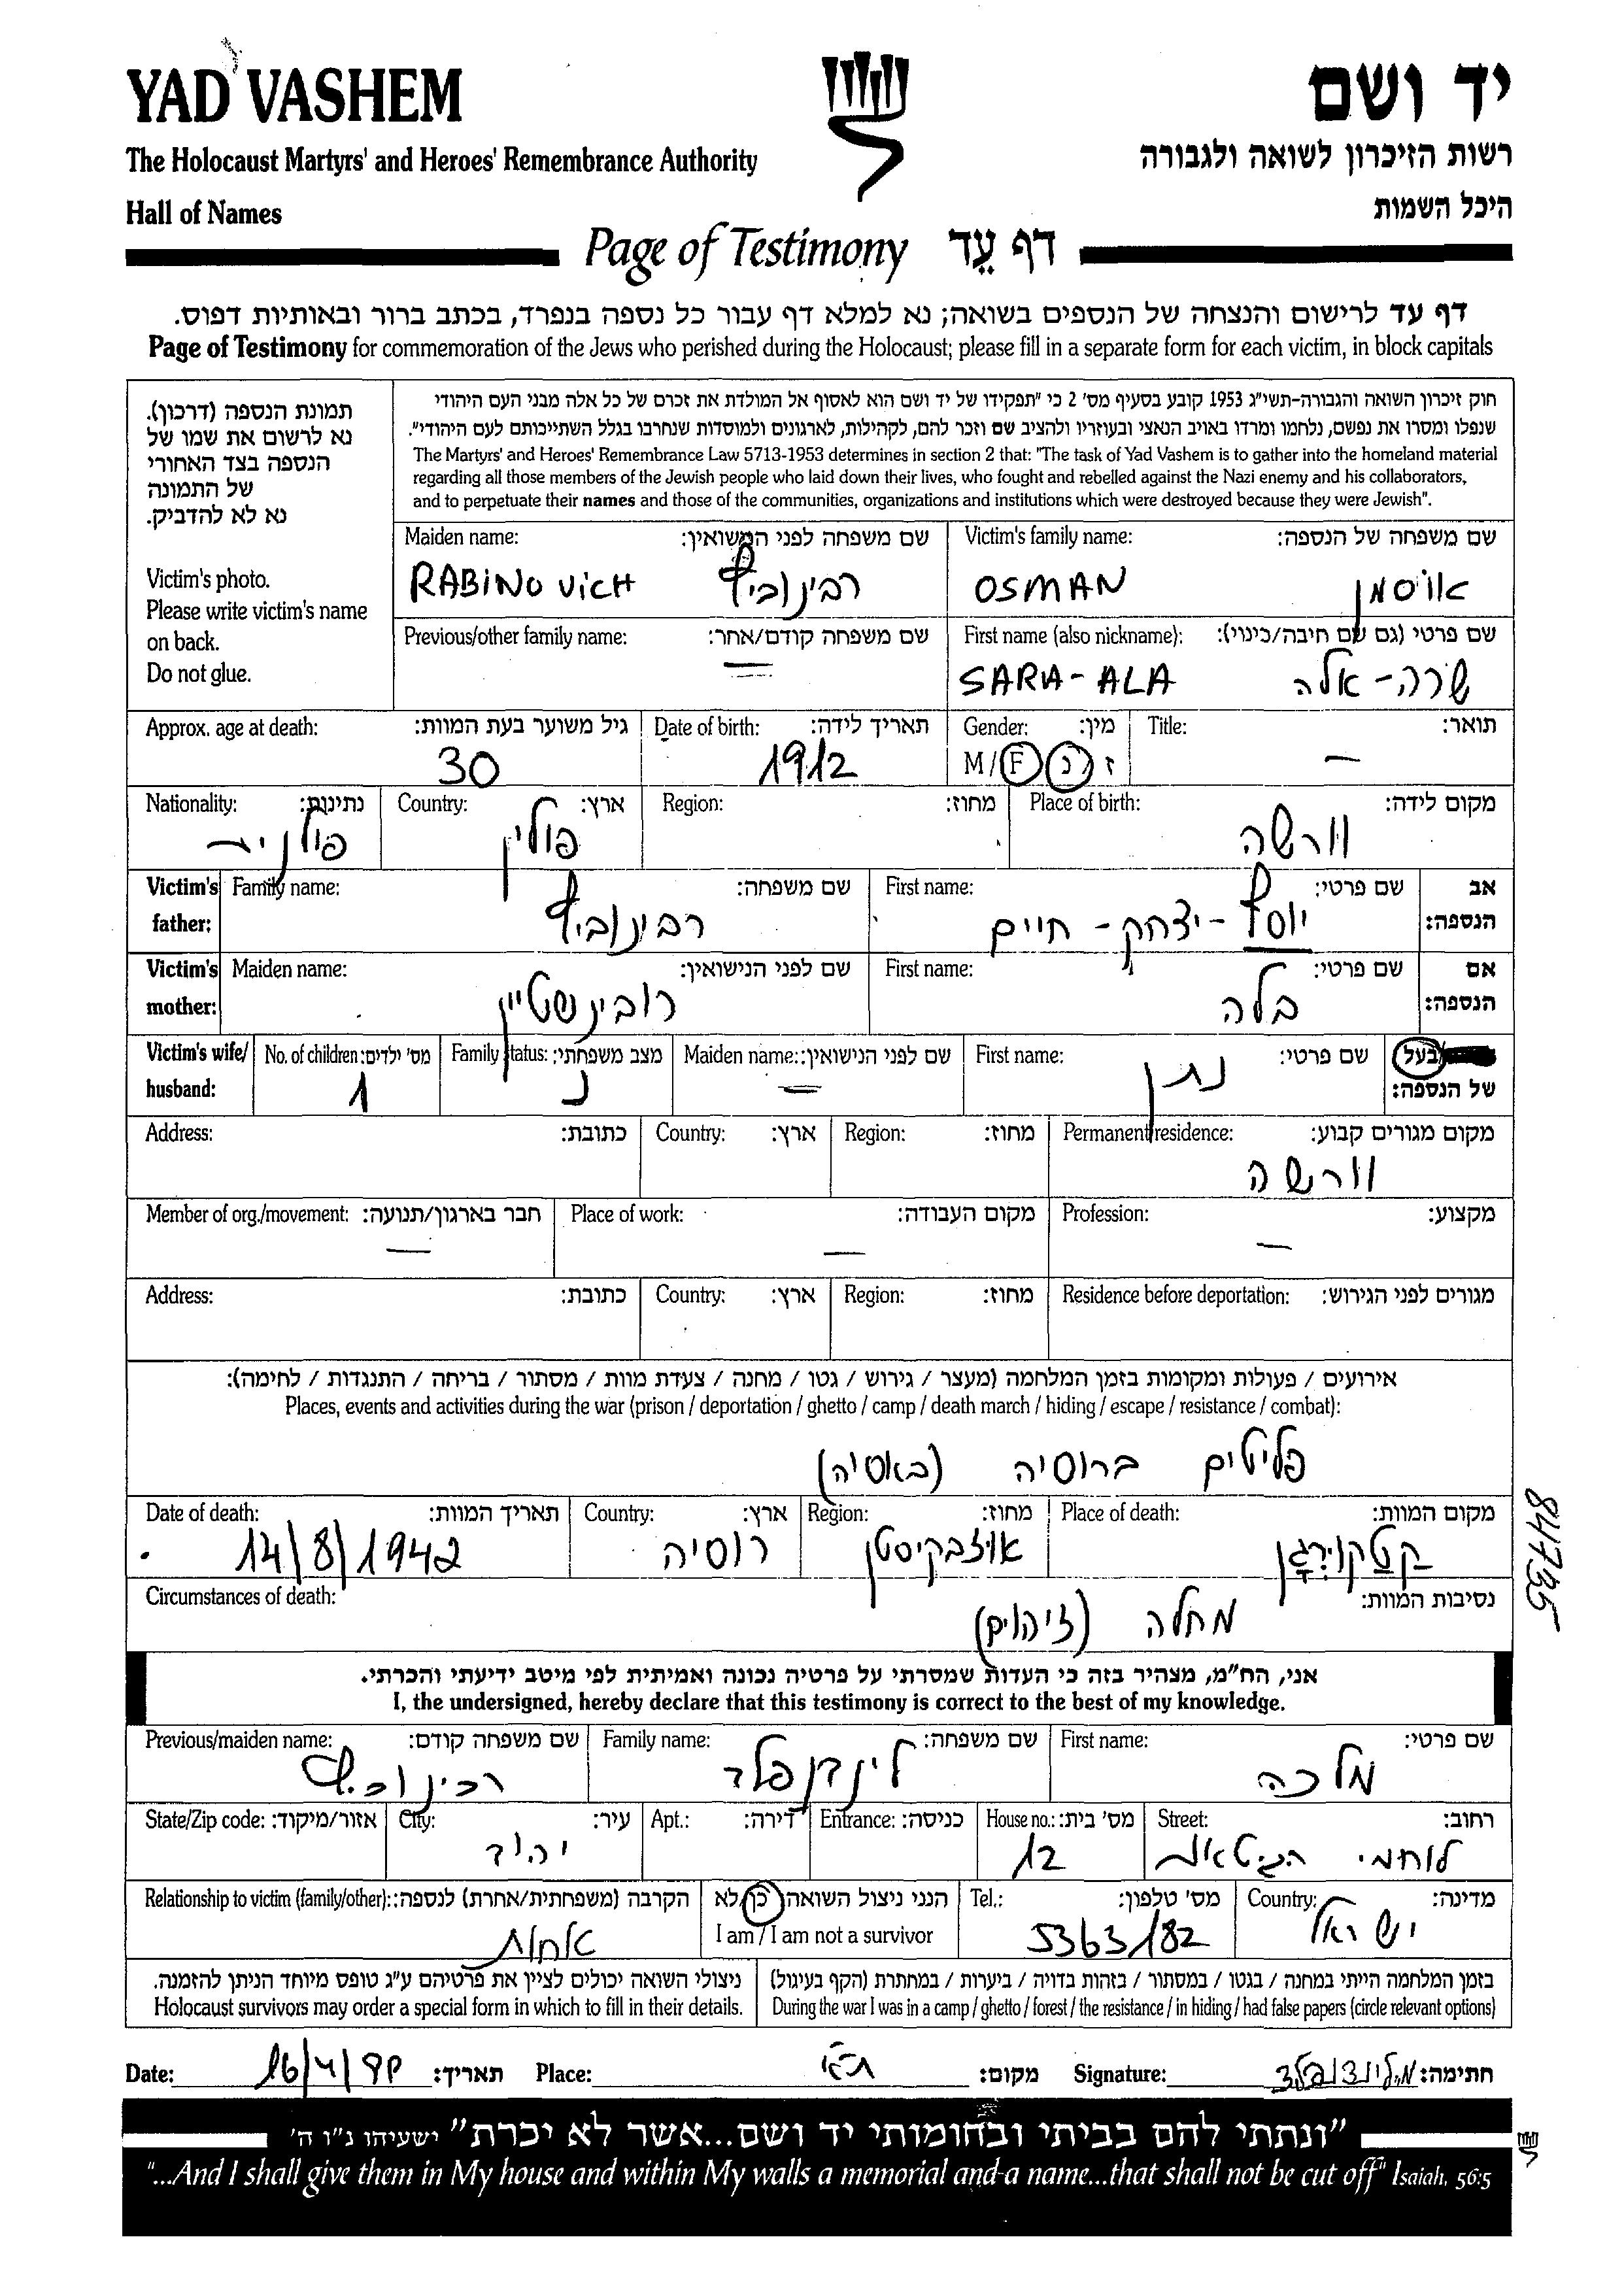 YAD VASHEM
יד ושם
The Holocaust Martyrs' and Heroes' Remembrance Authority
רשות הזיכרון לשואה ולגבורה
Hall of Names
היכל השמות
Page of Testimony דף עֵד
דף עד לרישום והנצחה של הנספים בשואה; נא למלא דף עבור כל נספה בנפרד, בכתב ברור ובאותיות דפוס.
Page of Testimony for commemoration of the Jews who perished during the Holocaust; please fill in a separate form for each victim, in block capitals
תמונת הנספה (דרכון).
נא לרשום את שמו של
הנספה בצד האחורי
של התמונה
נא לא להדביק.
Victim's photo.
Please write victim's name
on back.
Do not glue.
חוק זיכרון השואה והגבורה-תשי"ג 1953 קובע בסעיף מס' 2 כי "תפקידו של יד ושם הוא לאסוף אל המולדת את זכרם של כל אלה מבני העם היהודי
שנפלו ומסרו את נפשם, נלחמו ומרדו באויב הנאצי ובעוזריו ולהציב שם וזכר להם, לקהילות, לארגונים ולמוסדות שנחרבו בגלל השתייכותם לעם היהודי".
The Martyrs' and Heroes' Remembrance Law 5713-1953 determines in section 2 that: "The task of Yad Vashem is to gather into the homeland material
regarding all those members of the Jewish people who laid down their lives, who fought and rebelled against the Nazi enemy and his collaborators,
and to perpetuate their names and those of the communities, organizations and institutions which were destroyed because they were Jewish".
Victim's family name: שם משפחה של הנספה:
OSMAN אוסמן
Maiden name: שם משפחה לפני הנישואין:
RABINOVICH רבינוביץ
First name (also nickname): שם פרטי (גם שם חיבה/כינוי):
SARA-ALA שרה-אלה
Previous/other family name: שם משפחה קודם/אחר:
—
Title: תואר:
—
Gender: מין:
M/F ז/נ
Date of birth: תאריך לידה:
1912
Approx. age at death: גיל משוער בעת המוות:
30
Place of birth: מקום לידה:
וורשה
Region: מחוז:
Country: ארץ:
פולין
Nationality: נתינות:
פולנית
Victim's father: אב הנספה:
First name: שם פרטי:
יוסף-יצחק-חיים
Family name: שם משפחה:
רבינוביץ
Victim's mother: אם הנספה:
First name: שם פרטי:
בלה
Maiden name: שם לפני הנישואין:
רובינשטיין
Victim's wife/husband: בעל של הנספה:
First name: שם פרטי:
נתן
Maiden name: שם לפני הנישואין:
—
Family status: מצב משפחתי:
נ
No. of children: מס' ילדים:
1
Permanent residence: מקום מגורים קבוע:
וורשה
Region: מחוז:
Country: ארץ:
Address: כתובת:
Profession: מקצוע:
—
Place of work: מקום העבודה:
—
Member of org./movement: חבר בארגון/תנועה:
—
Residence before deportation: מגורים לפני הגירוש:
Region: מחוז:
Country: ארץ:
Address: כתובת:
אירועים / פעולות ומקומות בזמן המלחמה (מעצר / גירוש / גטו / מחנה / צעדת מוות / מסתור / בריחה / התנגדות / לחימה):
Places, events and activities during the war (prison / deportation / ghetto / camp / death march / hiding / escape / resistance / combat):
פליטים ברוסיה (באסיה)
Place of death: מקום המוות:
קטקורגן
Region: מחוז:
אוזבקיסטן
Country: ארץ:
רוסיה
Date of death: תאריך המוות:
14/8/1942
Circumstances of death: נסיבות המוות:
מחלה (זיהום)
84735
אני, הח"מ, מצהיר בזה כי העדות שמסרתי על פרטיה נכונה ואמיתית לפי מיטב ידיעתי והכרתי.
I, the undersigned, hereby declare that this testimony is correct to the best of my knowledge.
First name: שם פרטי:
מלכה
Family name: שם משפחה:
לינדנפלד
Previous/maiden name: שם משפחה קודם:
רבינוביץ
Street: רחוב:
לוחמי הגיטאות
House no.: מס' בית:
12
Entrance: כניסה:
Apt.: דירה:
City: עיר:
יהוד
State/Zip code: אזור/מיקוד:
Country: מדינה:
ישראל
Tel.: מס' טלפון:
5363182
הנני ניצול השואה כן/לא
I am / I am not a survivor
Relationship to victim (family/other): הקרבה (משפחתית/אחרת) לנספה:
אחות
בזמן המלחמה הייתי במחנה / בגטו / במסתור / בזהות בדויה / ביערות / במחתרת (הקף בעיגול)
During the war I was in a camp / ghetto / forest / the resistance / in hiding / had false papers (circle relevant options)
ניצולי השואה יכולים לציין את פרטיהם ע"ג טופס מיוחד הניתן להזמנה.
Holocaust survivors may order a special form in which to fill in their details.
Date: 16/4/99 תאריך: Place: ת"א מקום: Signature: חתימה:
"ונתתי להם בביתי ובחומותי יד ושם...אשר לא יכרת" ישעיהו נ"ו ה'
"...And I shall give them in My house and within My walls a memorial and a name...that shall not be cut off" Isaiah, 56:5